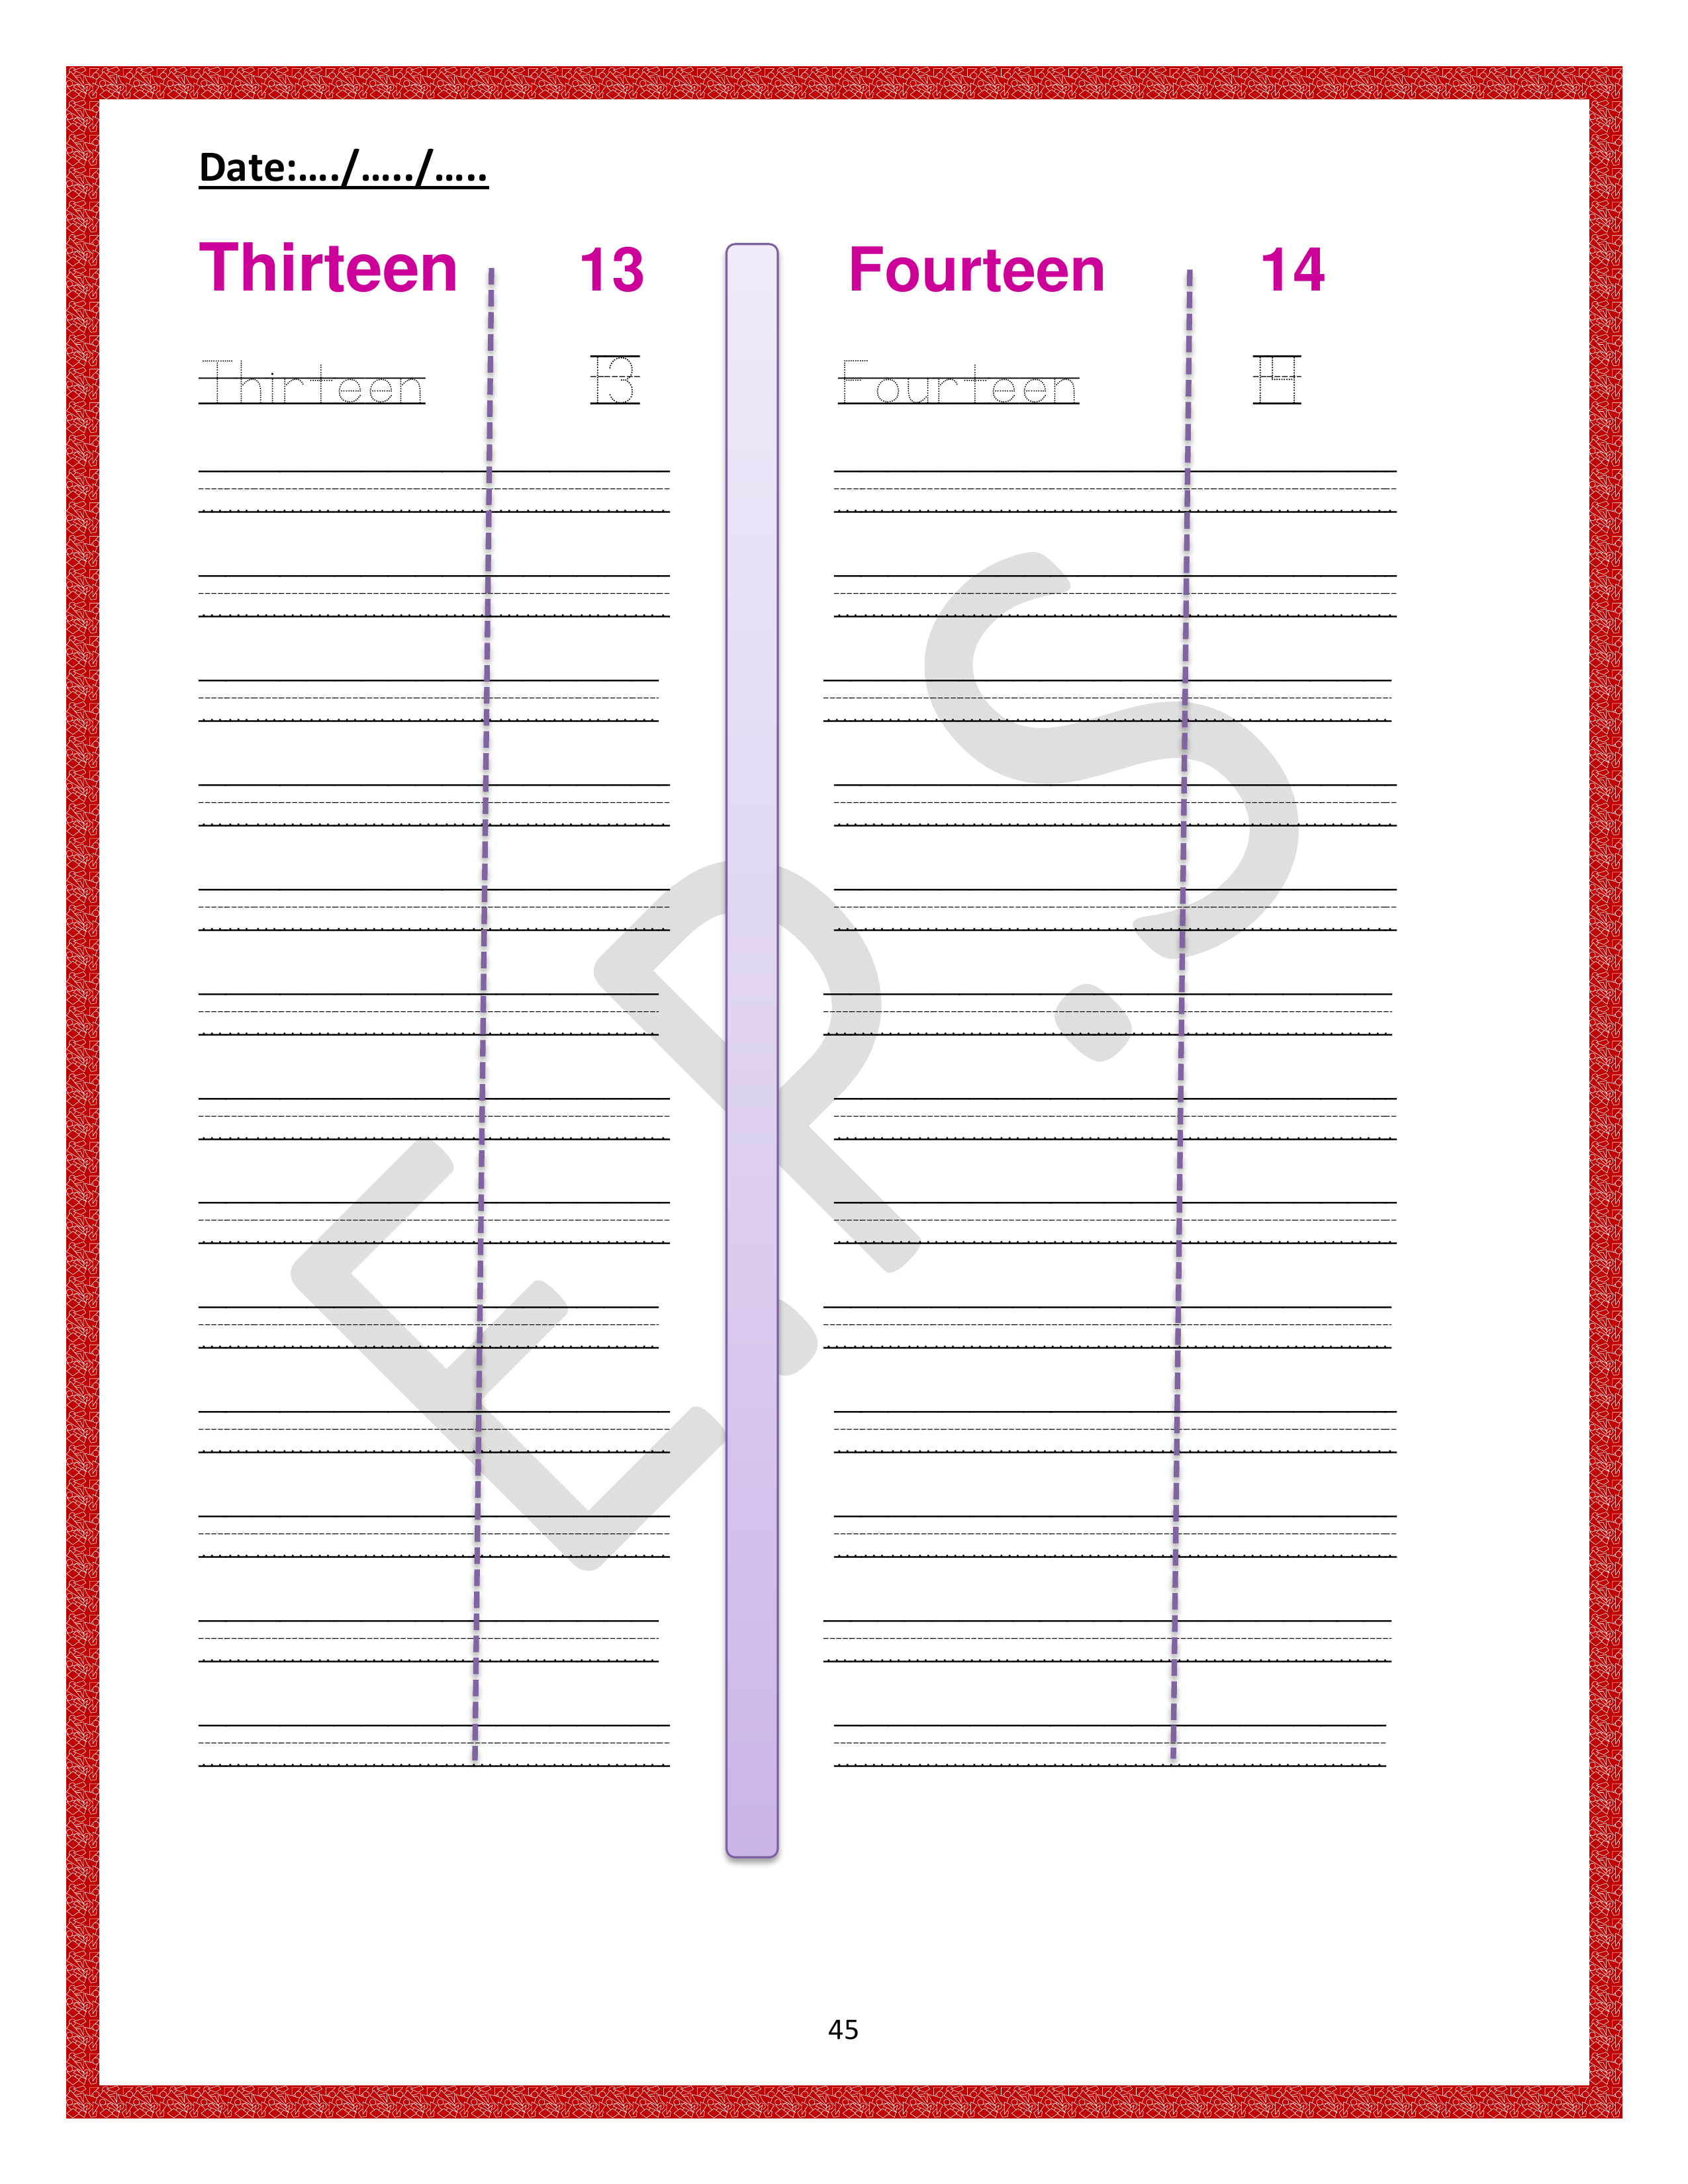 Date:..../...../.....
Thirteen 13 Fourteen 14
Thirteen 13 Fourteen 14
E.P.S
45